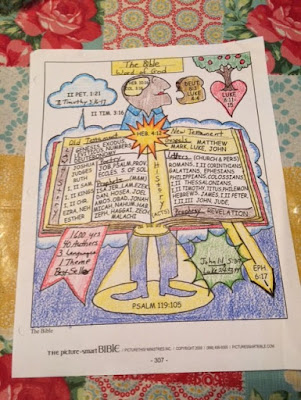 The Bible
Word of God
II PET. 1:21
II Timothy 3:16-17
II TIM. 3:16
HEB. 4:12
DEUT.
8:3
LUKE
4:4
LUKE
8:11-
15
Old Testament
GENESIS, EXODUS,
LEVITICUS, NUMBERS
DEUTERONOMY
JUDGES
RUTH
I, II SAM.
I, II KINGS
I, II CHR.
EZRA, NEH
ESTHER
Poetry
JOB, PSALM, PROV.
ECCLES., S. OF SOL.
Prophets
ISA, JER, LAM, EZEK,
DAN, HOSEA, JOEL
AMOS, OBAD, JONAH
MICAH, NAHUM, HAB
ZEPH, HAGGAI, ZECH
MALACHI
History
(ACTS)
New Testament
Gospels MATTHEW
MARK, LUKE, JOHN
Letters (CHURCH & PERS)
ROMANS, I, II CORINTHIANS
GALATIANS, EPHESIANS
PHILIPPIANS, COLOSSIANS
I, II THESSALONIANS,
I, II TIMOTHY, TITUS, PHILEMON
HEBREWS, JAMES, I, II PETER
I, II, III JOHN, JUDE
Prophecy REVELATION
1600 yrs
40 Authors
3 Languages
1 Theme
Best-Seller
John 5:39
Luke 24:27
EPH.
6:17
PSALM 119:105
The Bible
THE picture-smart BIBLE
- 307 -